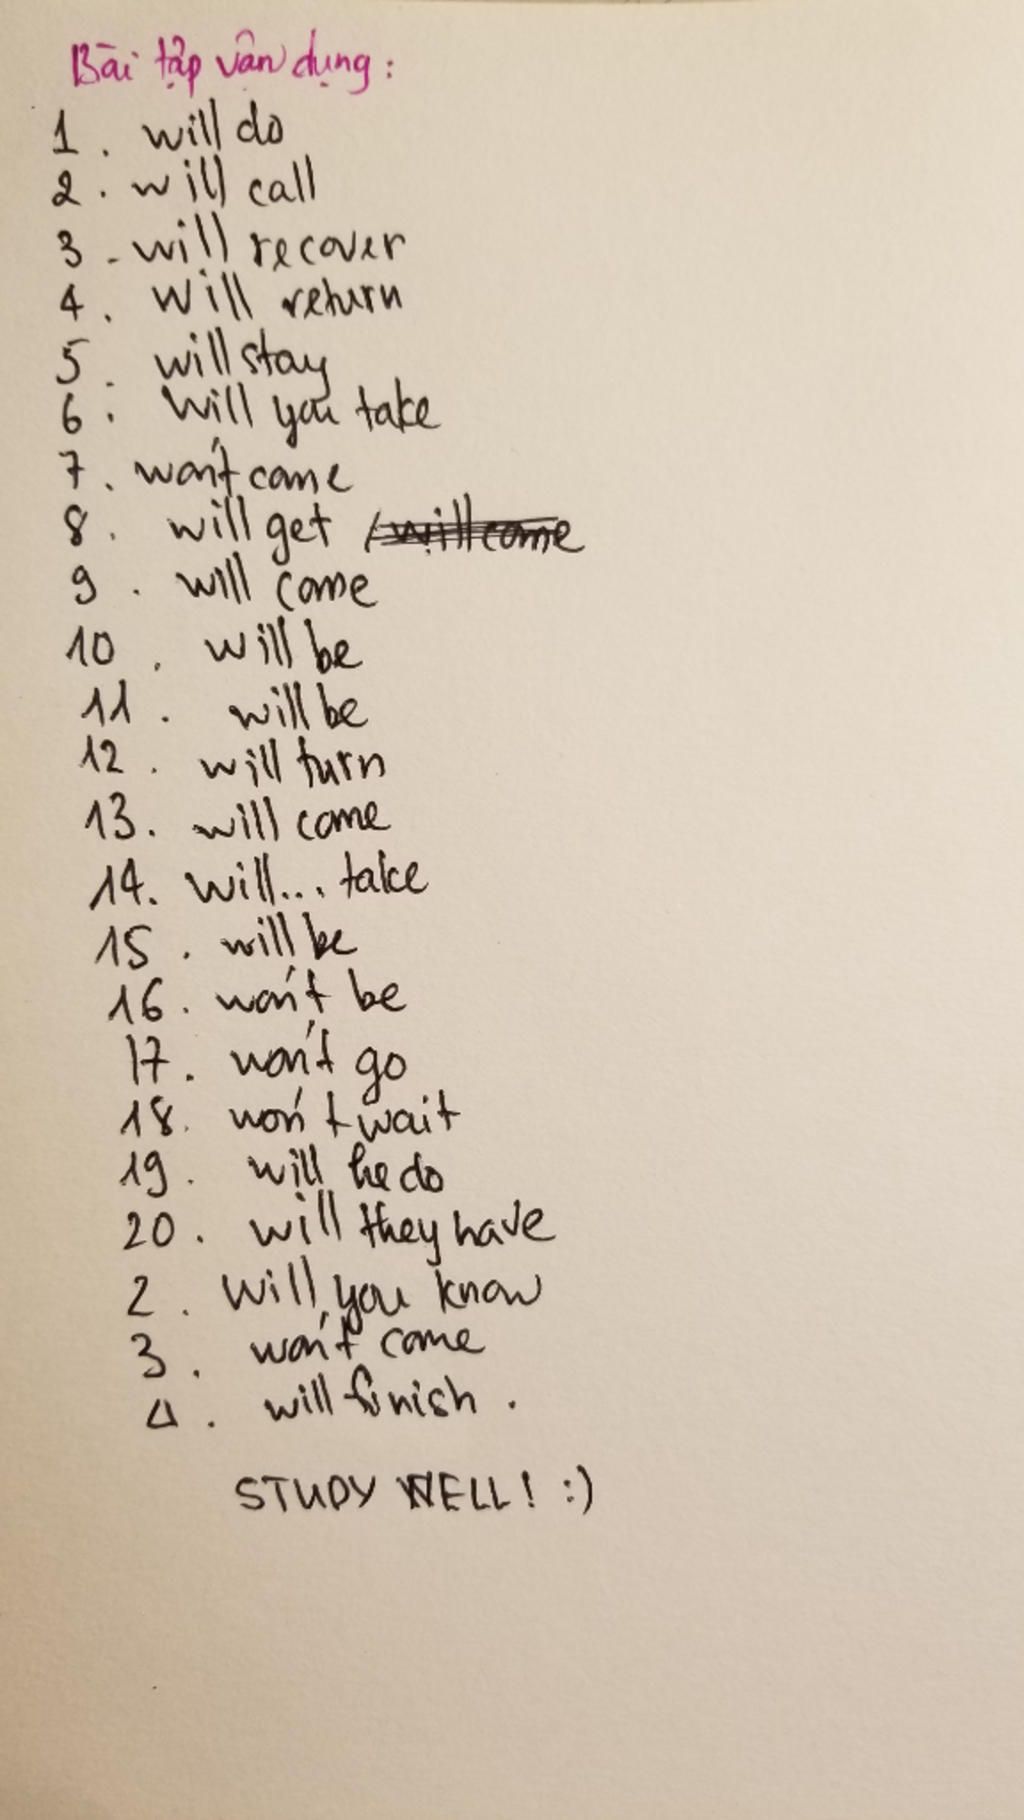 Bài tập vân dụng:
1. will do
2. will call
3. will recover
4. will return
5. will stay
6. Will you take
7. won't come
8. will get / will come
9. will come
10. will be
11. will be
12. will turn
13. will come
14. will... take
15. will be
16. won't be
17. won't go
18. won't wait
19. will he do
20. will they have
2. Will you know
3. won't come
4. will finish.
STUDY WELL! :)